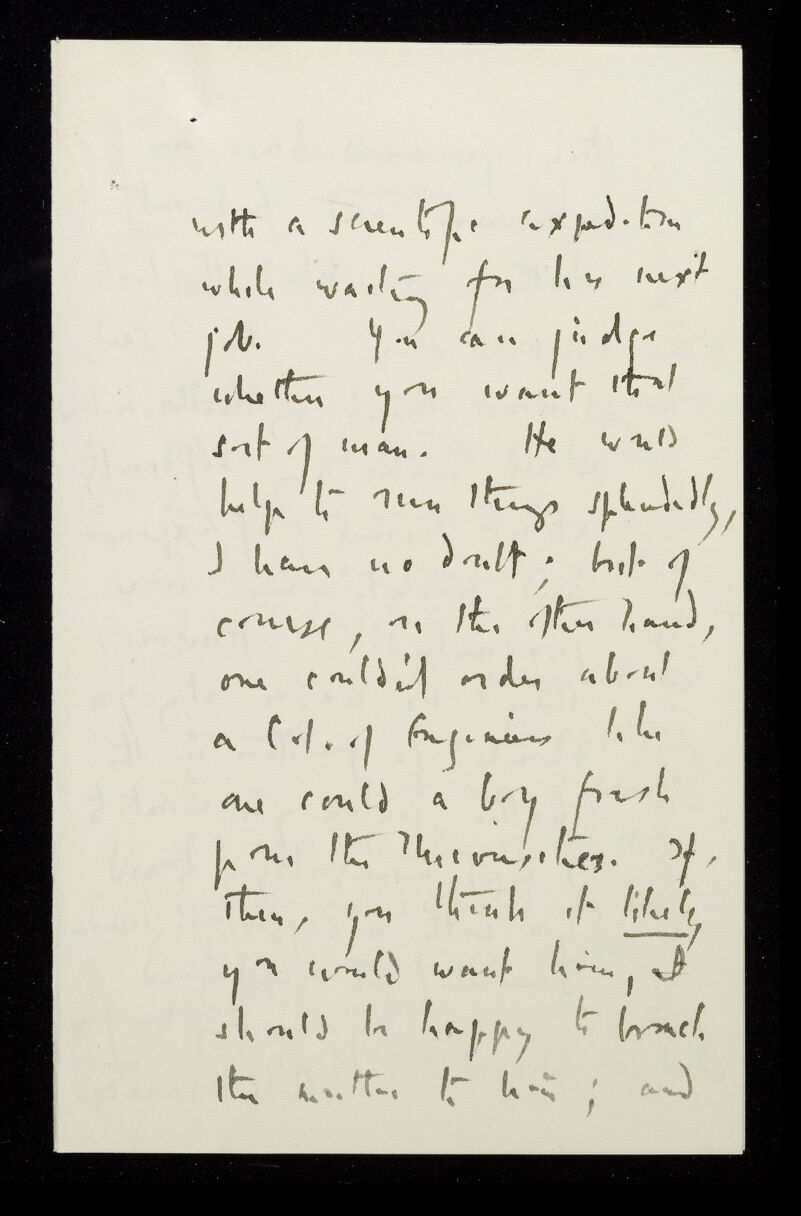 with a scientific expedition
while waiting for his next
job. You can judge
whether you want that
sort of man. He would
help to run things splendidly,
I have no doubt; but of
course, on the other hand,
one couldn't order about
a Col. of Engineers like
one could a boy fresh
from the Universities. If,
then, you think it likely
you would want him, I
should be happy to broach
the matter to him; and